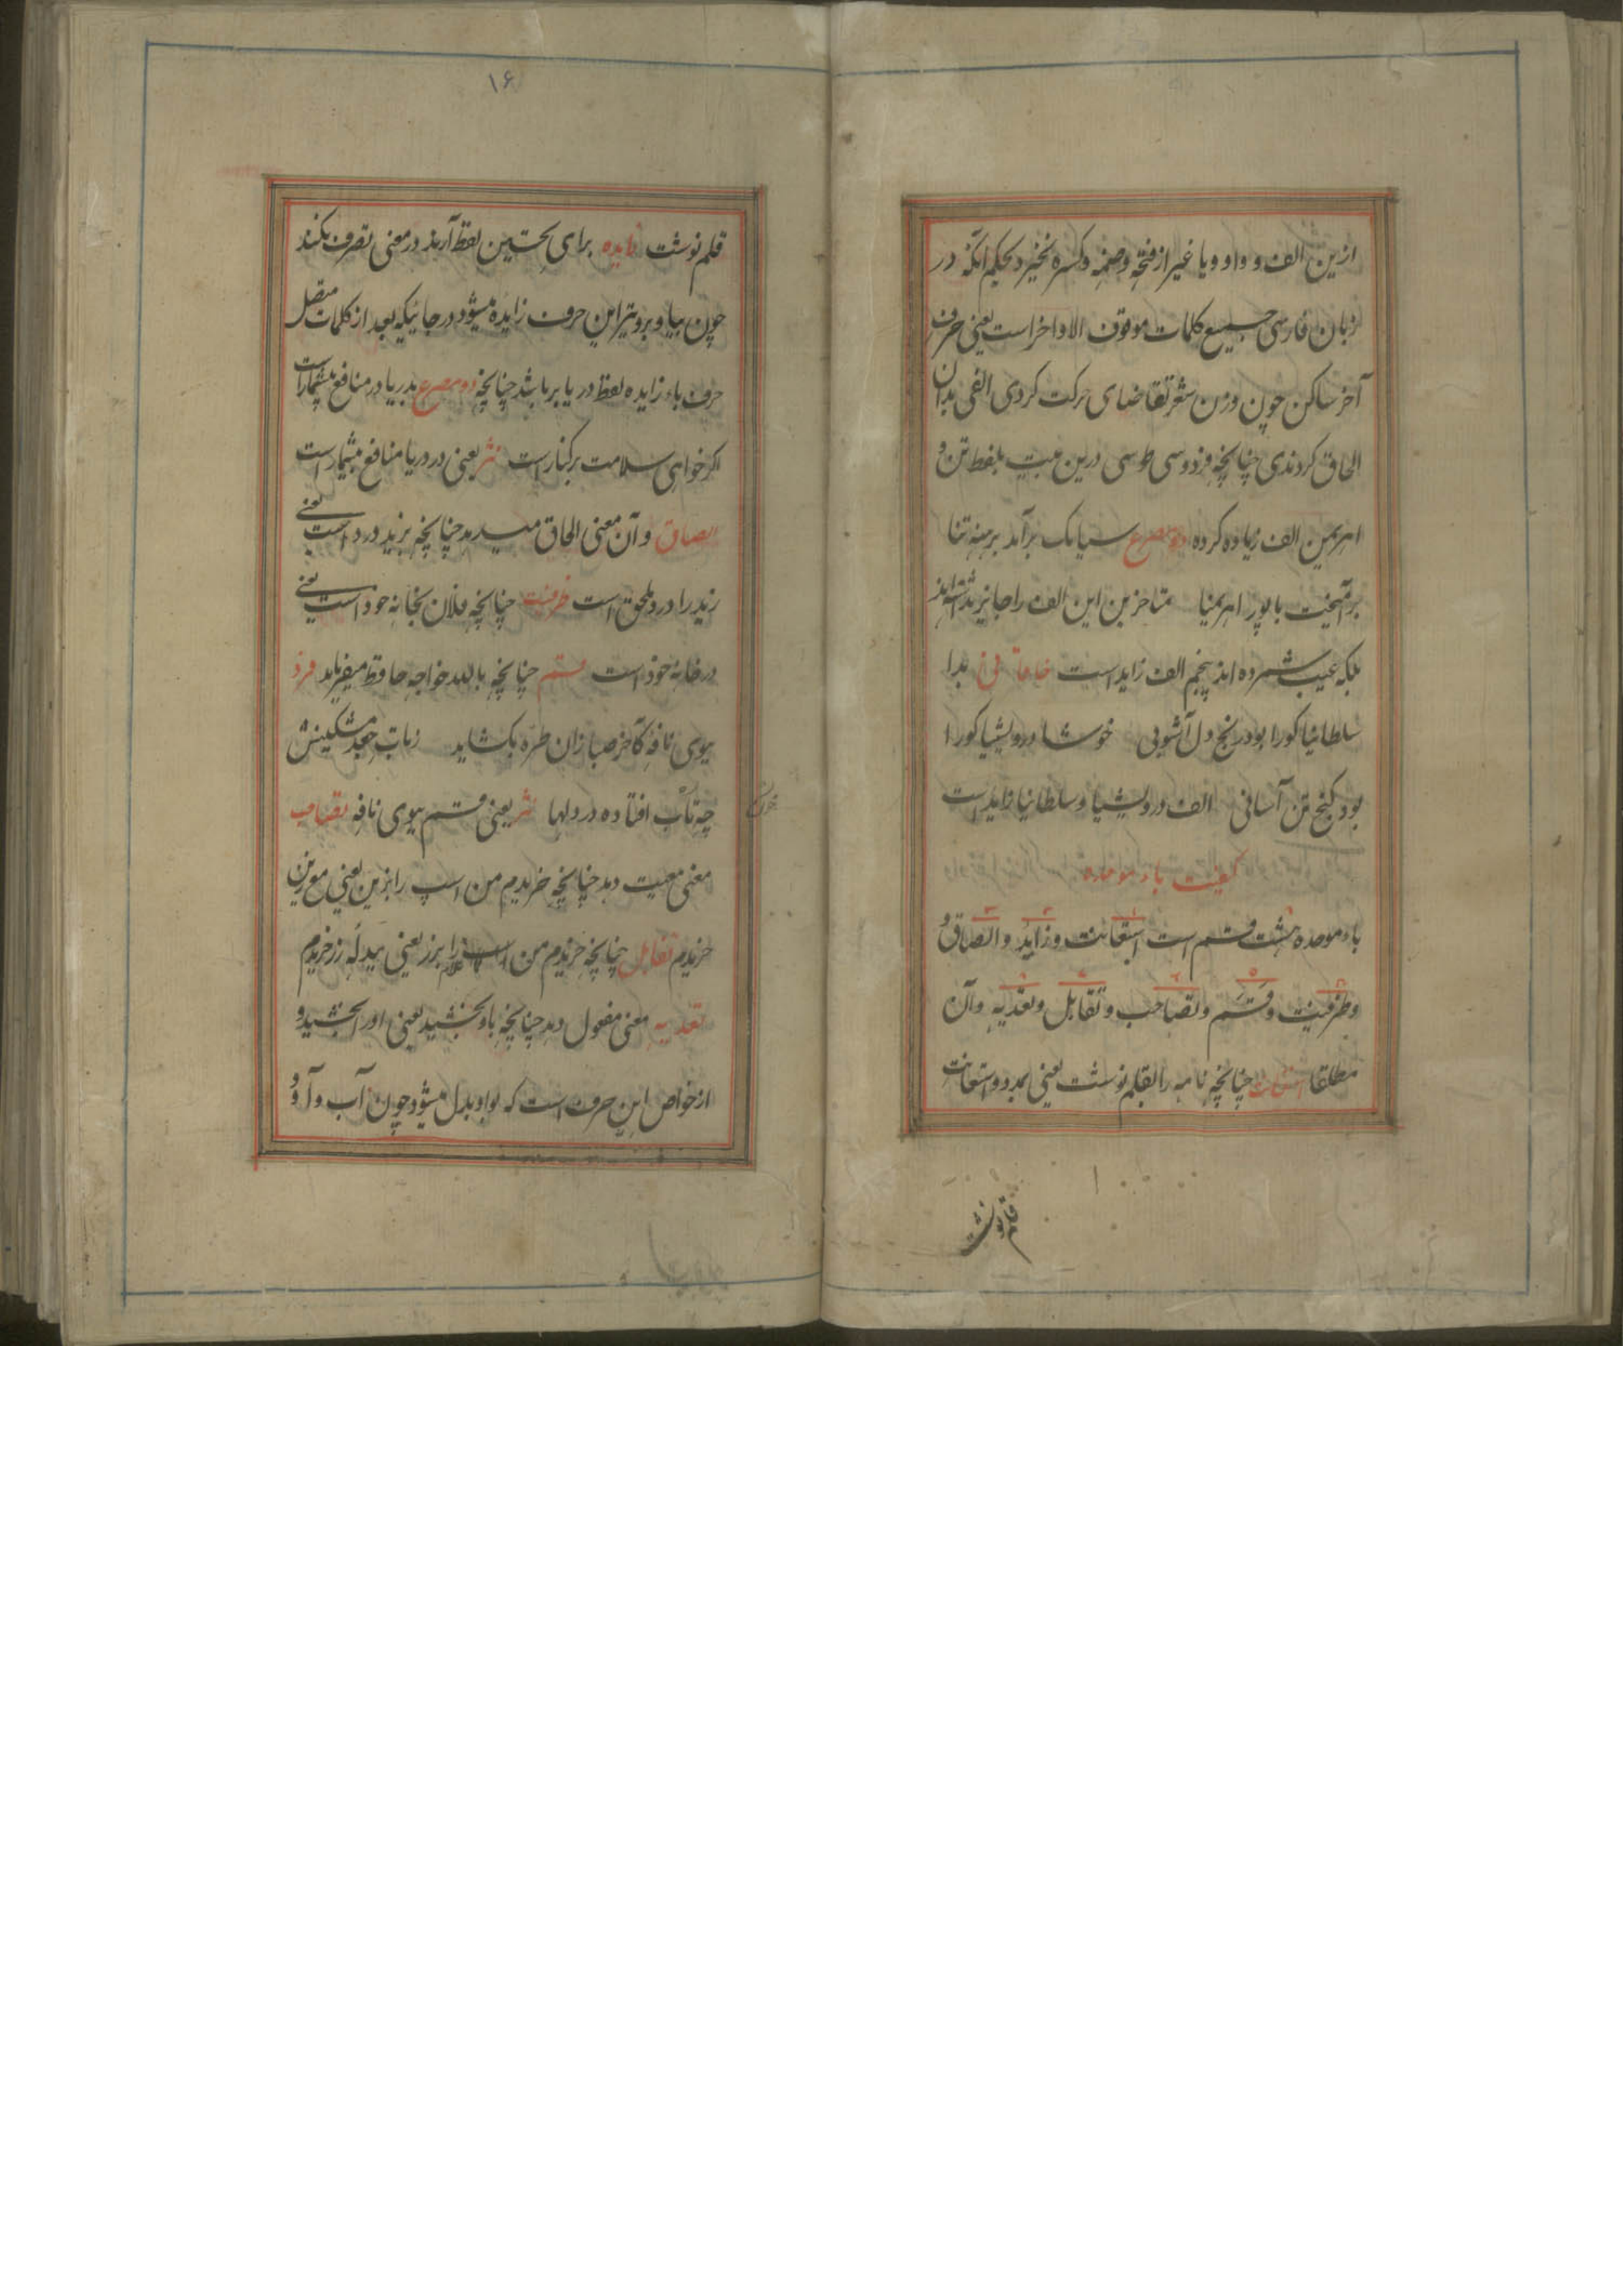 ازین الف و واو و یا غیر از فتحه و ضمه و کسره نخیزد بحکم آنکه در
زبان فارسی جمیع کلمات موقوف الاواخر است یعنی حرف
آخر ساکن چون وزن شعر تقاضای حرکت کردی الفی بدان
الحاق کردندی چنانچه فردوسی طوسی درین بیت بلفظ تن و
اهریمن الف زیاده کرده دو مصرع سیامک برآمد برهنه تنا
برآمیخت با پور اهریمنا متاخرین این الف را جایز نداشته‌اند
بلکه عیب شمرده اند پنجم الف زاید است بدا
سلطانیا کورا بود رنج دل آشوبی خوشا درویشیا کورا
بود گنج تن آسانی الف درویشیا و سلطانیا زاید است
کیفیت باء موحده
باء موحده هشت قسم است استعانت و زاید و الصاق و
و ظرفیت و قسم و تصاحب و تقابل و تعدیه و آن
مطلقا استعانت چنانچه نامه را بقلم نوشت یعنی بمدد و استعانت
قلم نوشت
۱۶
قلم نوشت زایده برای تحسین لفظ آرند در معنی تصرف نکند
چون بیا و برو نیز این حرف زایده میشود در جائیکه بعد از کلمات متصل
حرف باء زایده لفظ در یا بر باشد چنانچه دو مصرع بدریا در منافع بیشمار است
اگر خواهی سلامت بر کنار است نثر یعنی در دریا منافع بیشمار است
الصاق و آن معنی الحاق میدهد چنانچه بزید درد است یعنی
زید را درد ملحق است ظرفیت چنانچه فلان بخانه خود است یعنی
در خانه خود است قسم چنانچه بالله خواجه حافظ میفرماید فرد
ببوی نافه کاخر صبا زان طره بکشاید ز تاب جعد مشکینش
چه تاب افتاده در دلها نثر یعنی قسم ببوی نافه تصاحب
معنی معیت دهد چنانچه خریدم من اسپ را بزین یعنی مع زین
خریدم تقابل چنانچه خریدم من اسپ را بزر یعنی ببدله زر خریدم
تعدیه معنی مفعول دهد چنانچه باو بخشید یعنی او را بخشید و
از خواص این حرف است که بواو بدل میشود چون آب و آو و